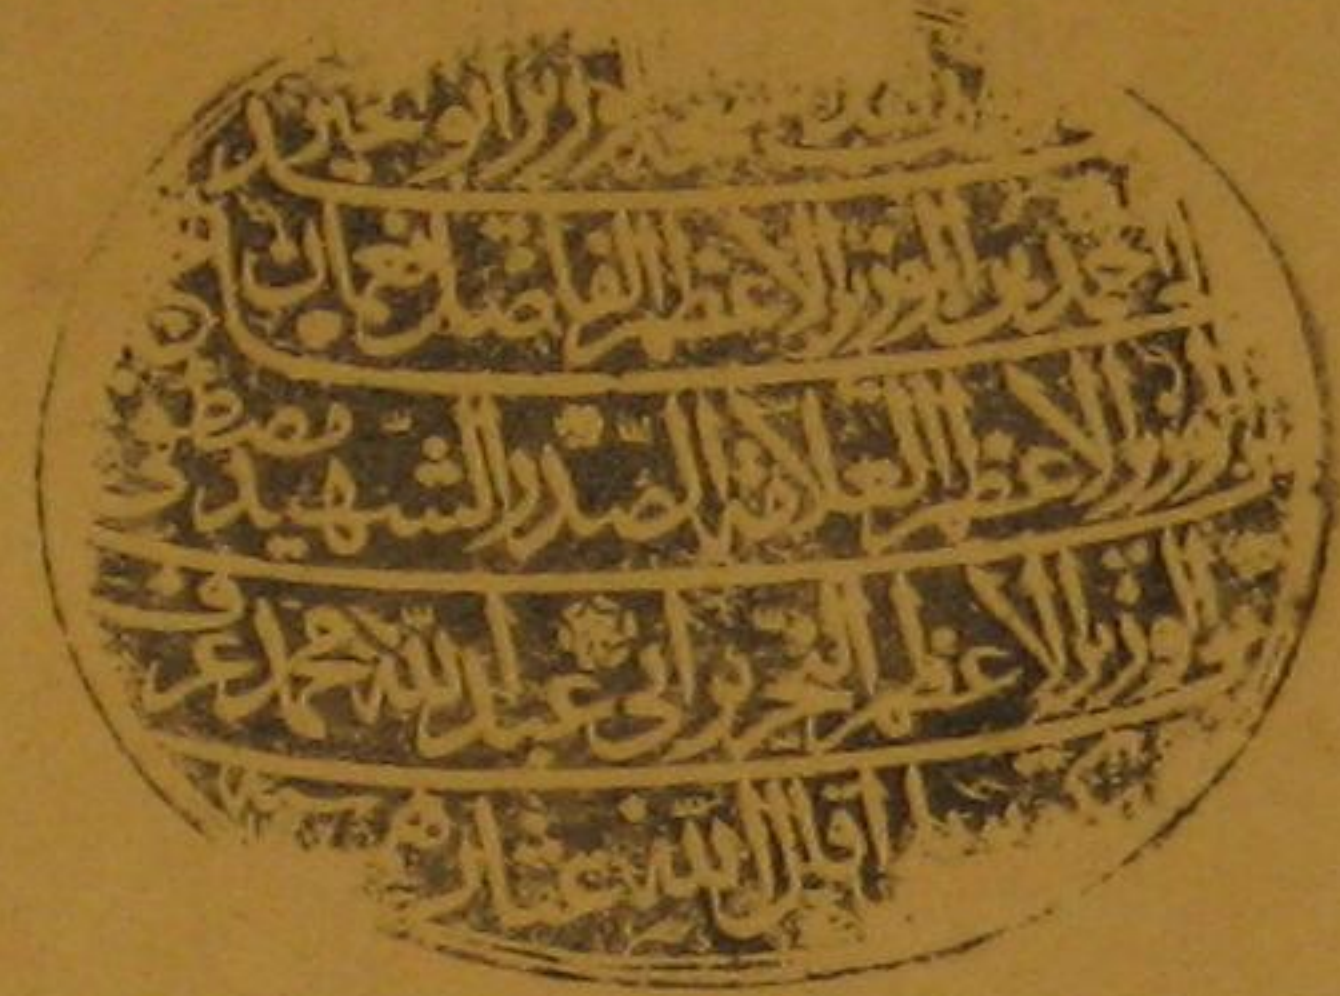 الوزير ابو
احمد بن الوزير الاعظم الفاضل نعمان بن
الوزير الاعظم العلامة الصدر الشهيد مصطفى
بن الوزير الاعظم النحرير ابي عبد الله محمد عرف
اقال الله عثارهم